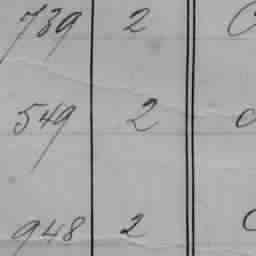 739 2
549 2
948 2